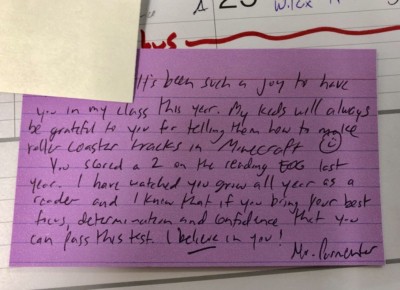 25
It's been such a joy to have
you in my class this year. My kids will always
be grateful to you for telling them how to make
roller coaster tracks in Minecraft
You scored a 2 on the reading EOG last
year. I have watched you grow all year as a
reader and I know that if you bring your best
focus, determination and confidence that you
can pass this test. I believe in you!
Mr.